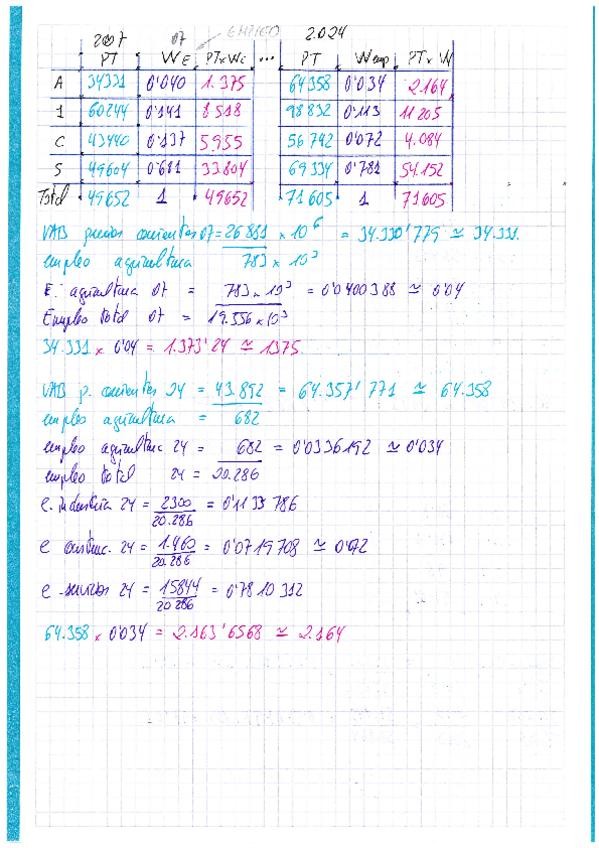 2007 07 EMPLEO 2.024
PT WE PT×WE ... PT Wemp PT×W
A 34331 0'040 1.375 64358 0'034 2.164
1 60244 0'141 8518 98832 0'113 11205
C 43440 0'137 5.955 56742 0'072 4.084
S 49604 0'681 33.804 69334 0'781 54.152
Total 49652 1 49652 71605 1 71605
VAB precios corrientes 07 = 26.881 × 10⁶ = 34.330'779 ≃ 34.331.
empleo agricultura 783 × 10³
E. agricultura 07 = 783 × 10³ = 0'0400388 ≃ 0'04
Empleo total 07 = 19.556×10³
34.331 × 0'04 = 1.373'24 ≃ 1375
VAB p. corrientes 24 = 43.892 = 64.357'771 ≃ 64.358
empleo agricultura = 682
empleo agricultura 24 = 682 = 0'0336192 ≃ 0'034
empleo total 24 = 20.286
e. industria 24 = 2300 = 0'1133786
20.286
e construc. 24 = 1.460 = 0'0719708 ≃ 0'072
20.286
e servicios 24 = 15844 = 0'7810312
20286
64.358 × 0'034 = 2.163'6568 ≃ 2.164